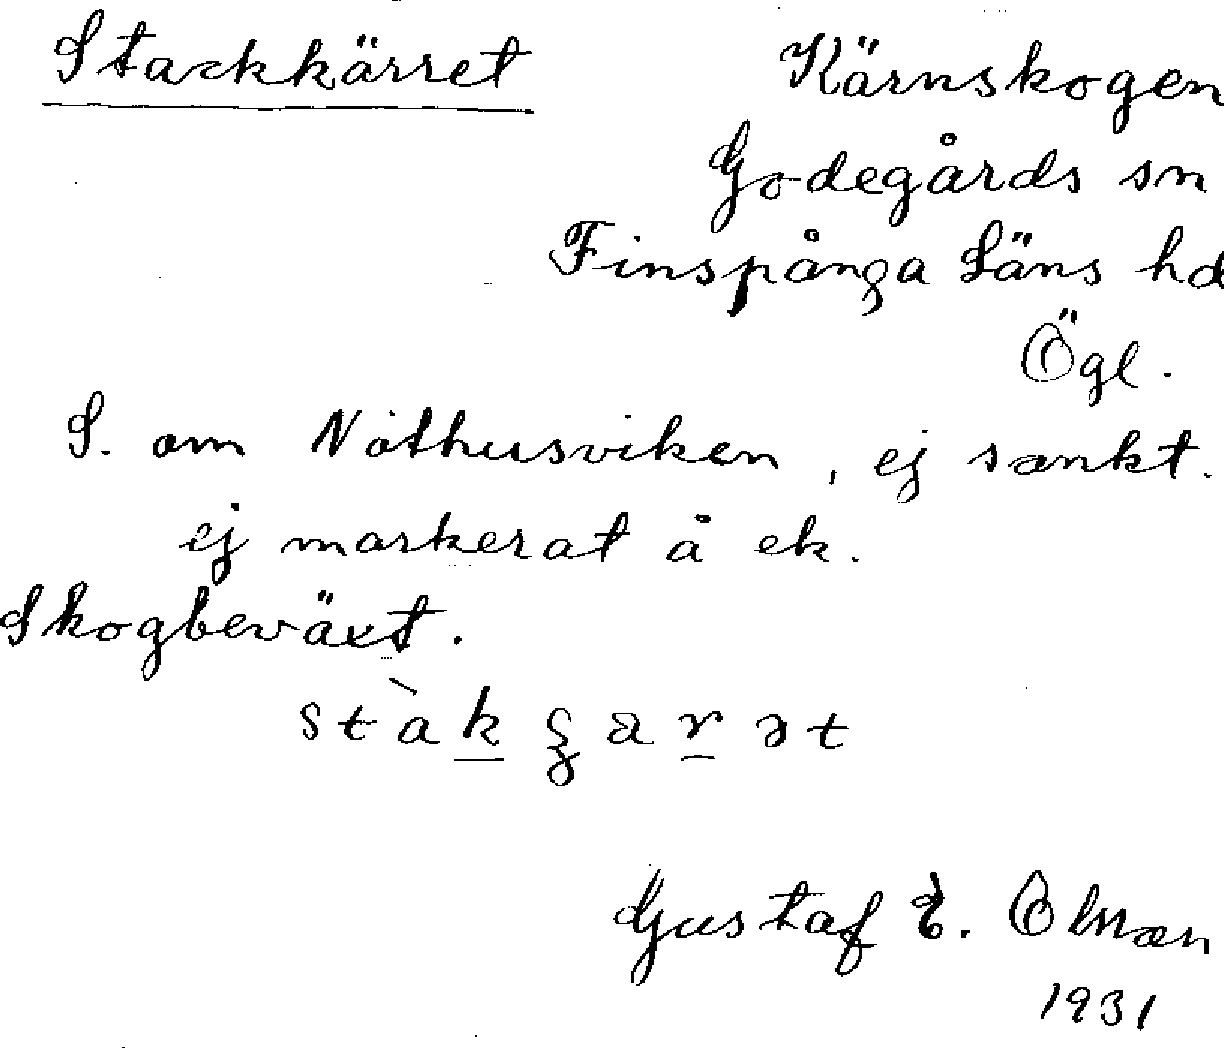 Stackkärret
Kärnskogen
Godegårds sn
Finspånga Läns hd
Ögl.
S. om Nöthusviken, ej sankt.
ej markerat å ek.
Skogbeväxt.
Gustaf E. Olman
1931